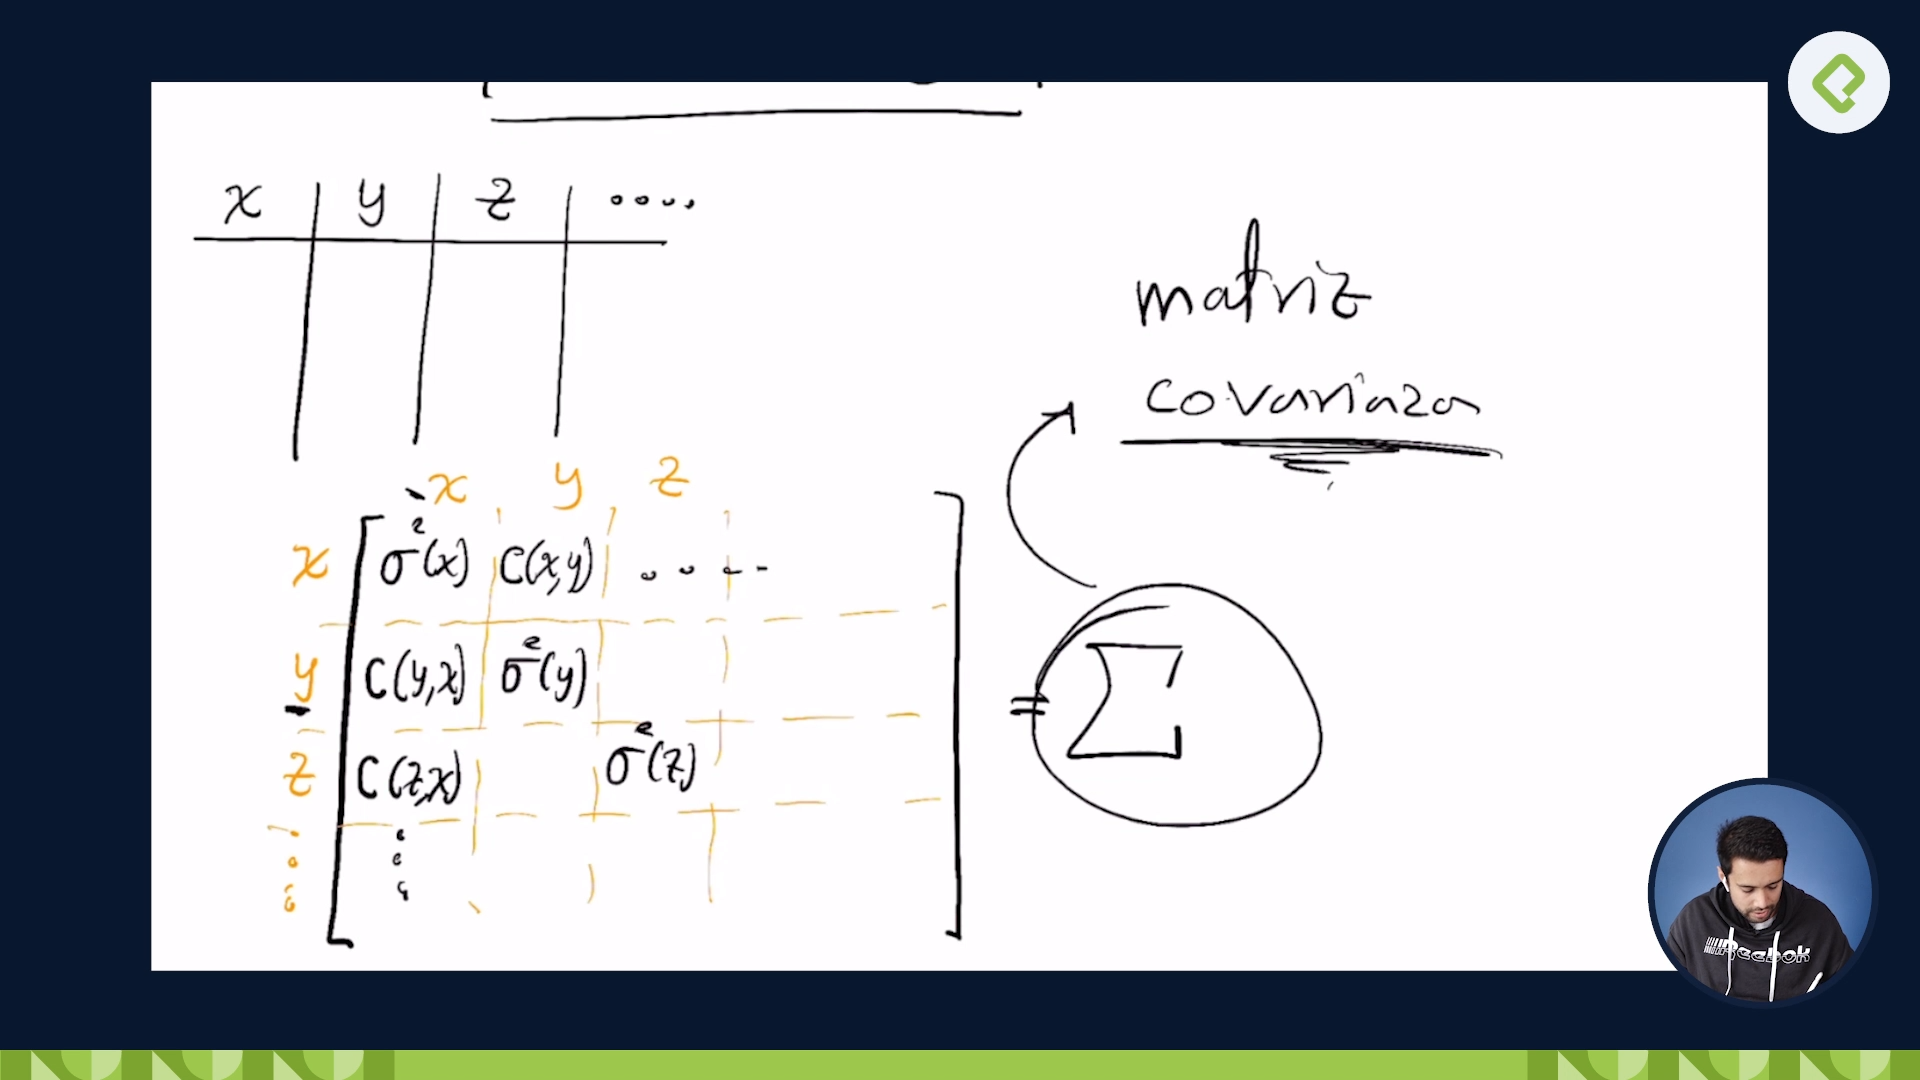 x y z ....
matriz
covarianza
x y z
x σ²(x) C(x,y) ....
y C(y,x) σ²(y)
z C(z,x) σ²(z)
= Σ
Reebok